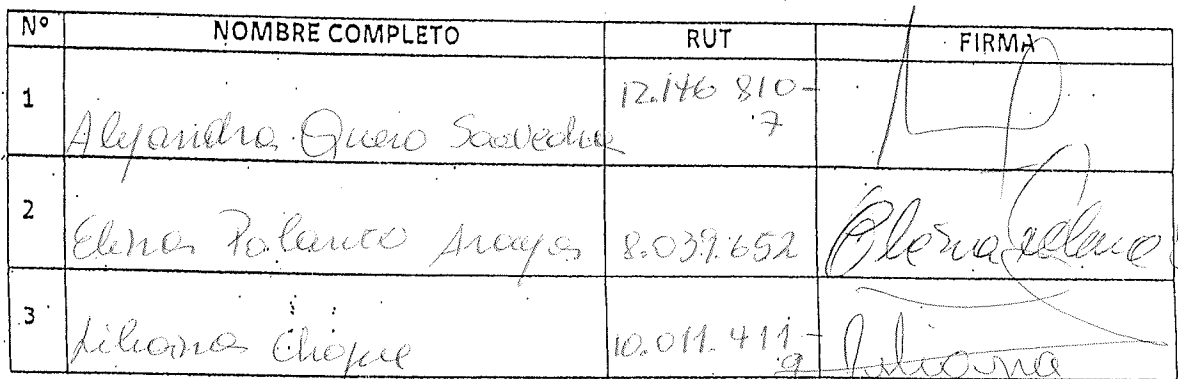 Nº NOMBRE COMPLETO RUT FIRMA
1 Alejandra Quero Saavedra 12.146 810-
7
2 Elena Polanco Araya 8.039.652 Elena Polanco
3 Liliana Choque 10.011.411- Liliana
9